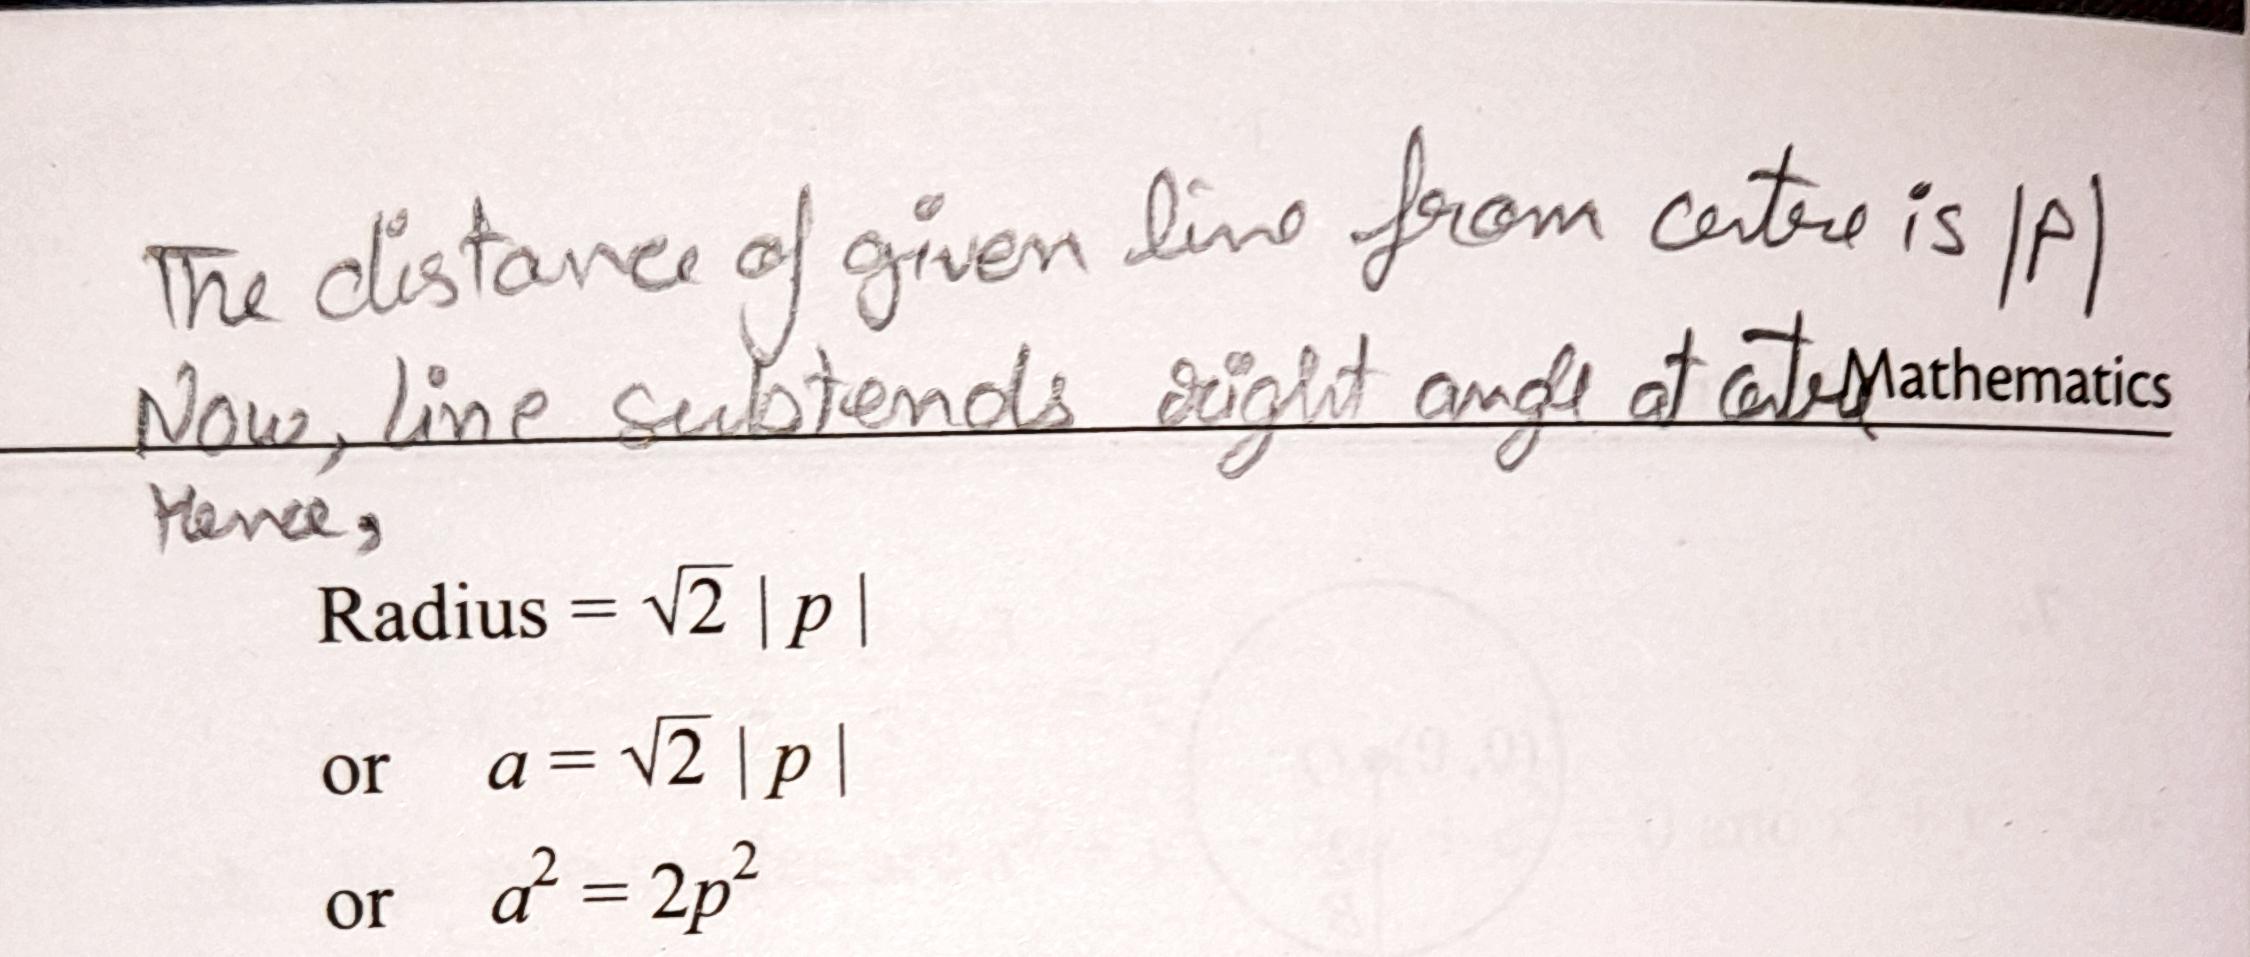 The distance of given line from centre is |p|
Now, line subtends right angle at centre
Mathematics
Hence,
Radius = √2 | p |
or a = √2 | p |
or a² = 2p²